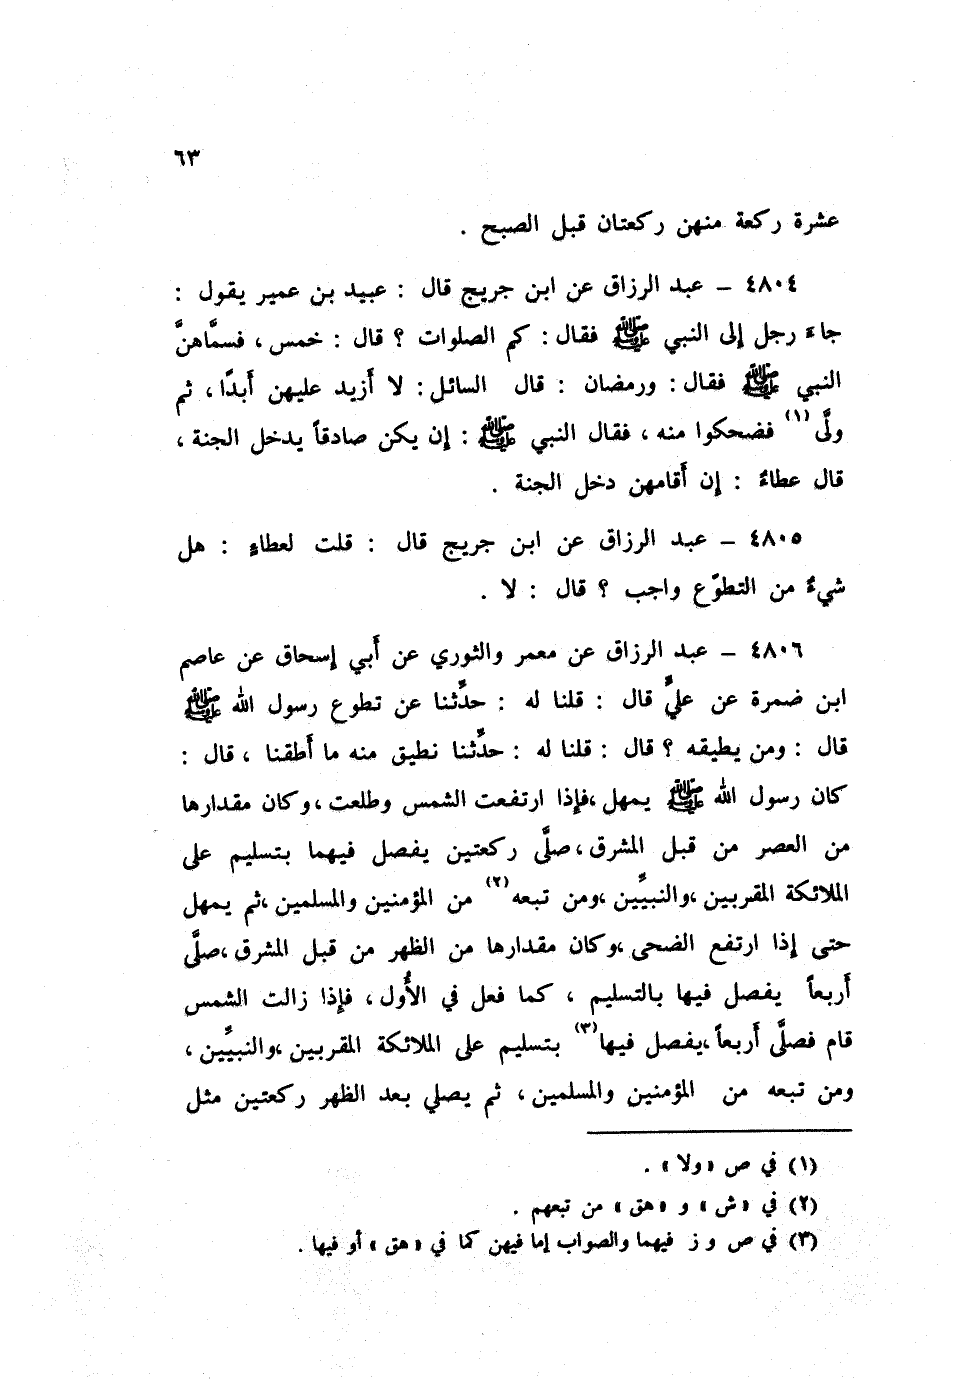 ٦٣
عشرة ركعة منهن ركعتان قبل الصبح .
٤٨٠٤ – عبد الرزاق عن ابن جريج قال : عبيد بن عمير يقول :
جاءَ رجل إلى النبي ﷺ فقال : كم الصلوات ؟ قال : خمس ، فسمَّاهنَّ
النبي ﷺ فقال : ورمضان : قال السائل : لا أَزيد عليهن أَبدًا ، ثم
ولَّى(١) فضحكوا منه ، فقال النبي ﷺ : إن يكن صادقاً يدخل الجنة ،
قال عطاءٌ : إن أَقامهن دخل الجنة .
٤٨٠٥ – عبد الرزاق عن ابن جريج قال : قلت لعطاءٍ : هل
شيءٌ من التطوّع واجب ؟ قال : لا .
٤٨٠٦ – عبد الرزاق عن معمر والثوري عن أَبي إسحاق عن عاصم
ابن ضمرة عن عليٍّ قال : قلنا له : حدِّثنا عن تطوع رسول الله ﷺ
قال : ومن يطيقه ؟ قال : قلنا له : حدِّثنا نطيق منه ما أَطقنا ، قال :
كان رسول الله ﷺ يمهل ،فإذا ارتفعت الشمس وطلعت ،وكان مقدارها
من العصر من قبل المشرق ،صلَّى ركعتين يفصل فيهما بتسليم على
الملائكة المقربين ،والنبيِّين ،ومن تبعه(٢) من المؤمنين والمسلمين ،ثم يمهل
حتى إذا ارتفع الضحى ،وكان مقدارها من الظهر من قبل المشرق ،صلَّى
أَربعاً يفصل فيها بالتسليم ، كما فعل في الأُول ، فإذا زالت الشمس
قام فصلَّى أَربعاً ،يفصل فيها(٣) بتسليم على الملائكة المقربين ،والنبيِّين ،
ومن تبعه من المؤمنين والمسلمين ، ثم يصلي بعد الظهر ركعتين مثل
(١) في ص «ولا» .
(٢) في «ش» و «هق» من تبعهم .
(٣) في ص و ز فيهما والصواب إما فيهن كما في «هق» أو فيها .